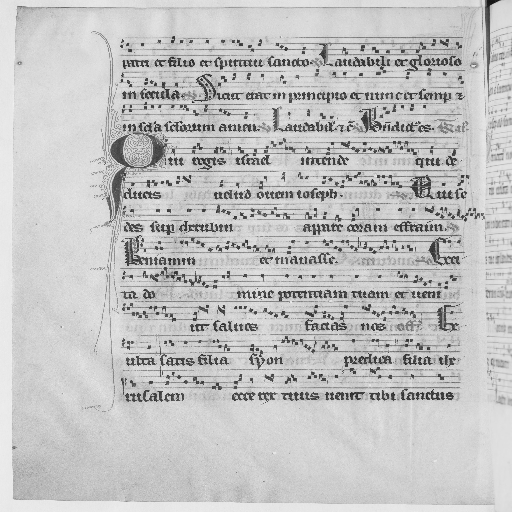 patri et filio et spiritui sancto Laudabili et glorioso
in secula Sicut erat in principio et nunc et semp
in scla sclorum amen Laudabil
Qui regis israel intende qui de
ducis velud ovem ioseph Qui se
des sup cherubin apare coram effraim
Beniamin et manasse Exci
ta do mine potentiam tuam et veni
ut salvos facias nos off Ex
ulta satis filia syon predica filia ihe
rusalem ecce rex tuus venit tibi sanctus